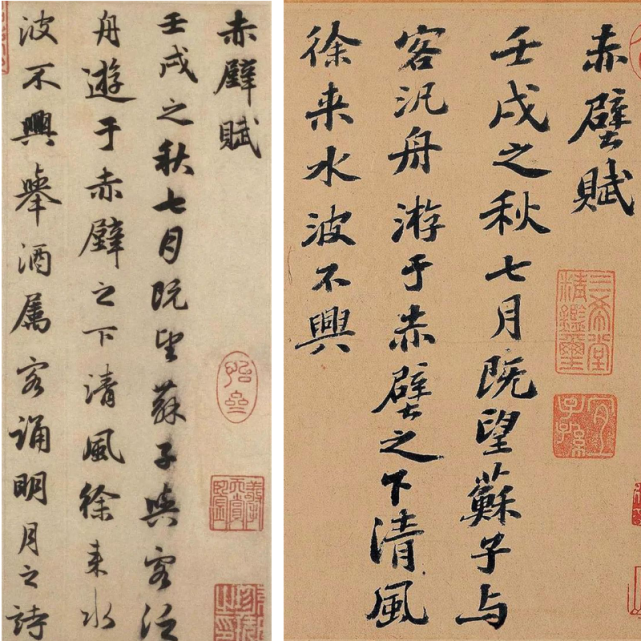 赤壁賦
壬戌之秋七月既望蘇子與客泛
舟遊于赤壁之下清風徐来水
波不興舉酒屬客誦明月之詩
赤壁賦
壬戌之秋七月既望蘇子与
客汎舟游于赤壁之下清風
徐来水波不興
三希堂
精鑑璽
宜
子孫